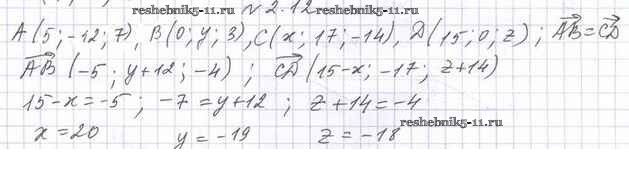 reshebnik5-11.ru
N 2.12
A(5; -12; 7), B(0; y; 3), C(x; 17; -14), D(15; 0; z); AB=CD
AB (-5; y+12; -4); CD (15-x; -17; z+14)
15-x=-5; -7=y+12; z+14=-4
reshebnik5-11.ru
x=20 y=-19 z=-18